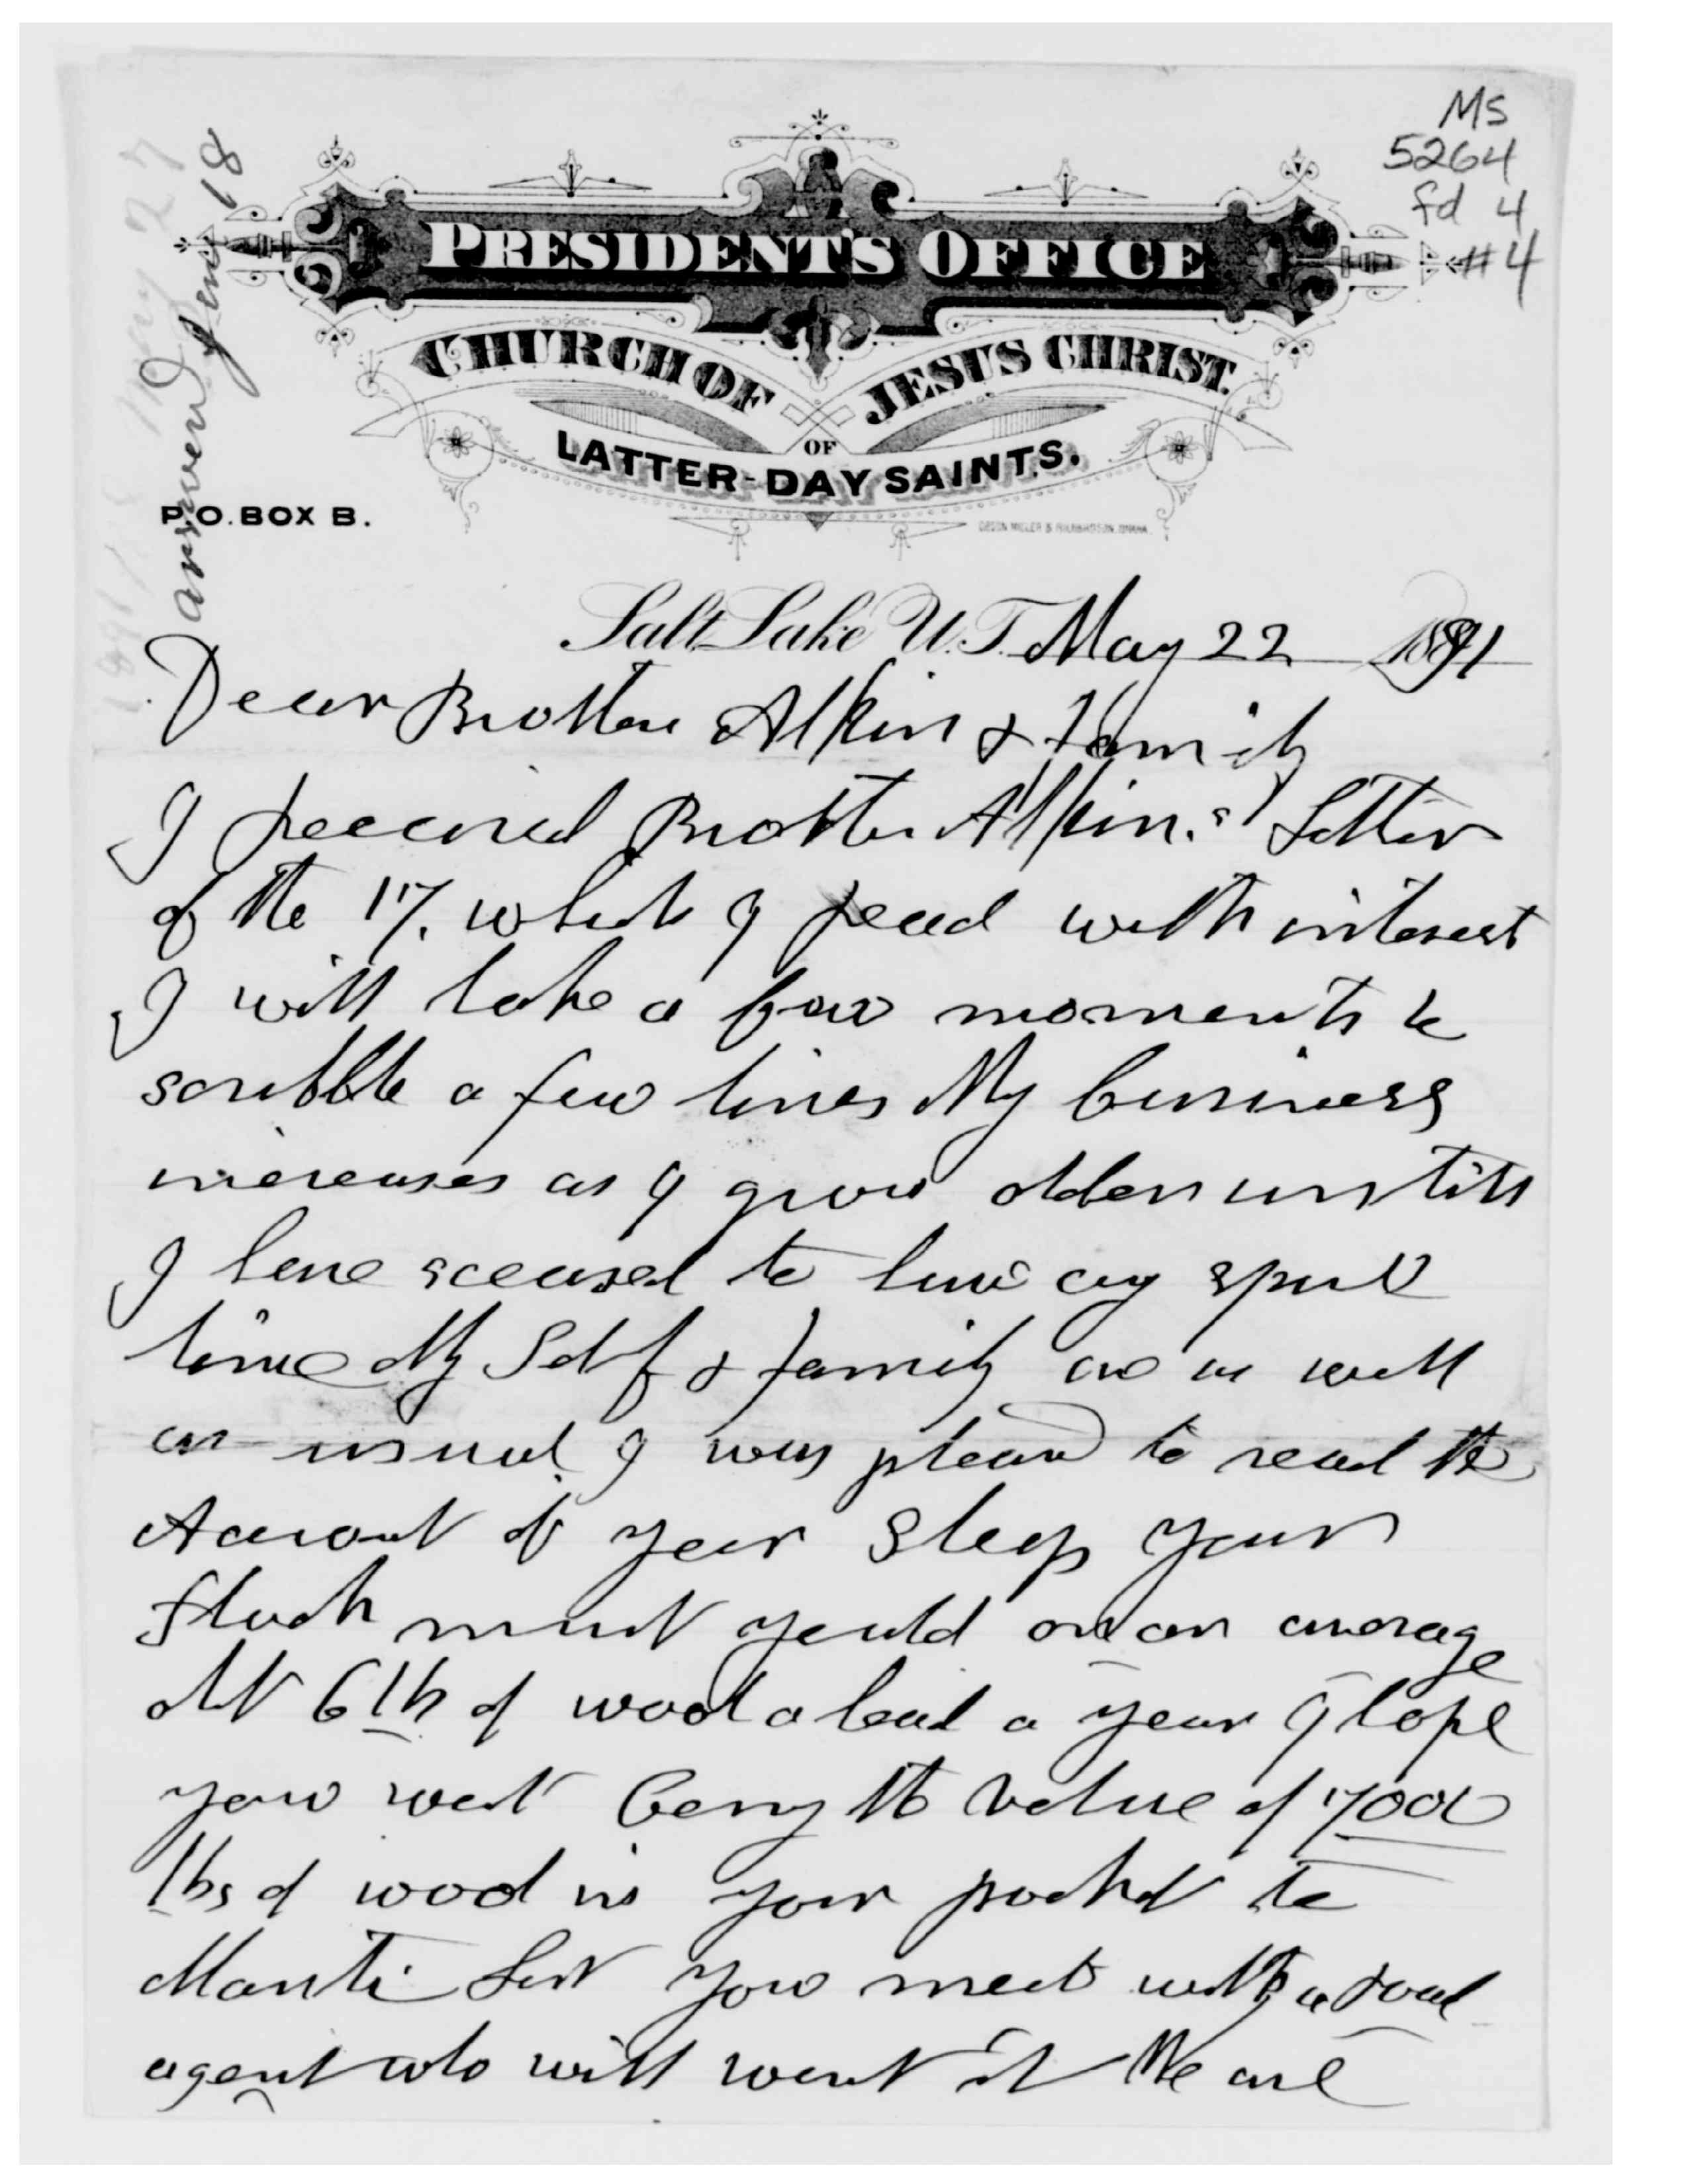 MS
5264
fd 4
#4
May 27
answered June 18
PRESIDENT'S OFFICE
CHURCH OF JESUS CHRIST
OF
LATTER-DAY SAINTS.
P.O. BOX B.
Salt Lake U.T. May 22 1891
Dear Brother Atkin & Family
I Received Brother Atkin.s Letter
of the 17. which I Read with interest
I will take a few moments to
scribble a few lines My business
increases as I grow older untill
I have sceased to have any spare
time My Self & family are as well
as usual I was pleased to read the
Account of your Sheep your
flock must yeald on an average
abt 6 lb of wool a head a year I hope
you wont Carry the value of 7000
lbs of wool in your pocket to
Manti Lest you meet with a road
agent who will want it We are